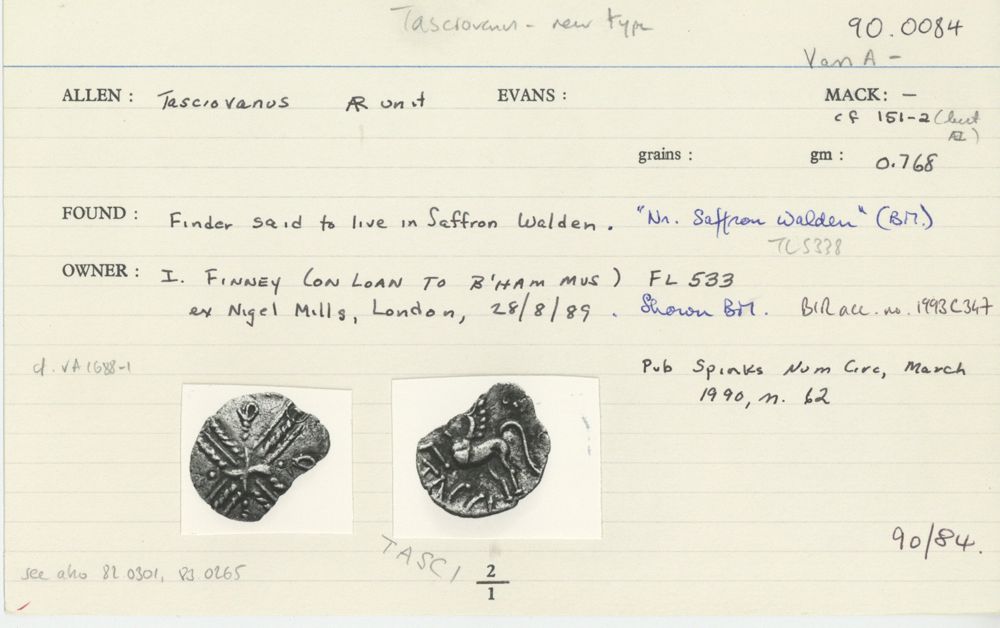 Tasciovanus - new type
90.0084
Van A -
ALLEN : Tasciovanus AR unit EVANS : MACK: —
cf 151-2 (but
Æ)
grains : gm : 0.768
FOUND : Finder said to live in Saffron Walden. "Nr. Saffron Walden" (BM)
TL5338
OWNER : I. FINNEY (ON LOAN TO B'HAM MUS) FL 533
ex Nigel Mills, London, 28/8/89. Shown BM. BIR acc. no. 1993C347
cf. VA 1688-1
Pub Spinks Num Circ, March
1990, n. 62
TASCI
90/84.
TASCI
see also 82.0301, 83.0265
2
1